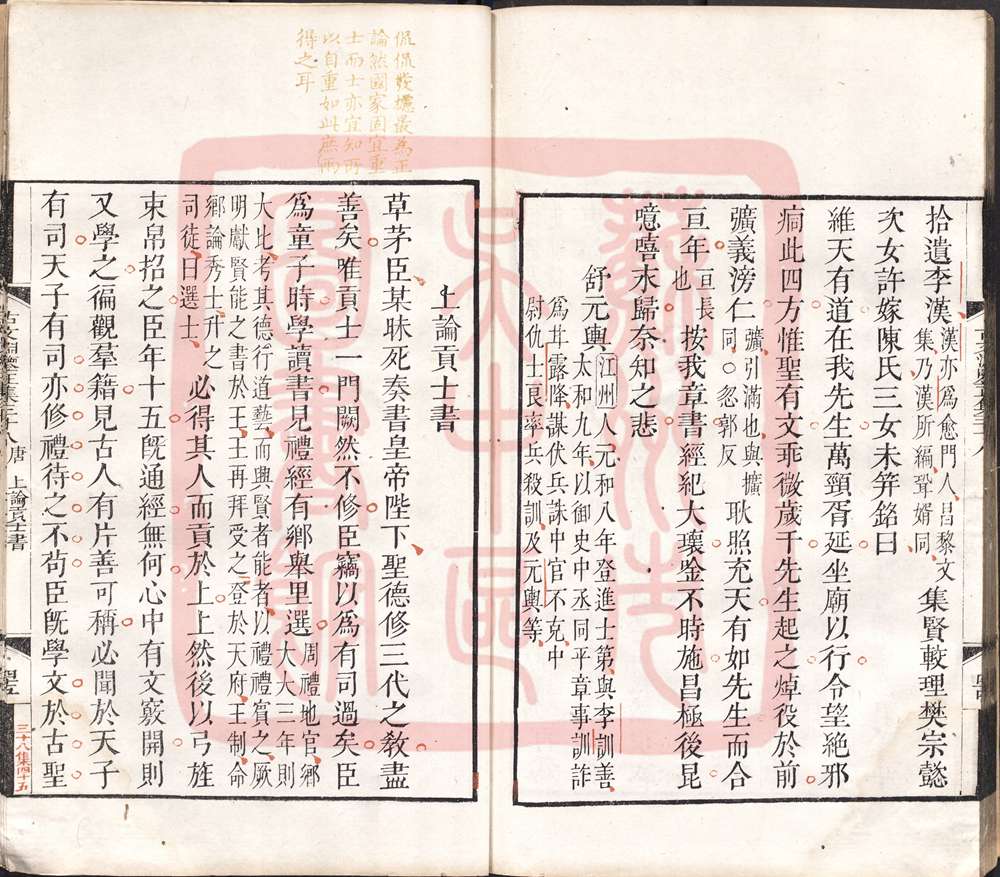 拾遺李漢漢亦爲愈門人昌黎文集乃漢所編聟婿同集賢較理樊宗懿
次女許嫁陳氏三女未笄銘曰
維天有道在我先生萬頸胥延坐廟以行令望絶邪
痌此四方惟聖有文乖微歲千先生起之焯役於前
彍義滂仁彍引滿也與擴同○忽郭反耿照充天有如先生而合
亘年亘長也按我章書經紀大瓌唫不時施昌極後昆
噫嘻永歸奈知之悲
舒元輿江州人元和八年登進士第與李訓善
太和九年以御史中丞同平章事訓詐
爲甘露降謀伏兵誅中官不克中
尉仇士良率兵殺訓及元輿等
侃侃
最爲正
論然國家固宜重
士而士亦宜知所
以自重如此庶兩
得之耳
上論貢士書
草茅臣某昧死奏書皇帝陛下聖德修三代之教盡
善矣唯貢士一門闕然不修臣竊以爲有司過矣臣
爲童子時學讀書見禮經有鄉舉里選周禮地官鄉大夫三年則
大比考其德行道藝而興賢者能者以禮禮賓之厥
明獻賢能之書於王王再拜受之登於天府王制命
鄉論秀士升之司徒曰選士必得其人而貢於上上然後以弓旌
束帛招之臣年十五旣通經無何心中有文竅開則
又學之徧觀羣籍見古人有片善可稱必聞於天子
有司天子有司亦修禮待之不苟臣旣學文於古聖
唐
上論貢士書
三十八集四十五